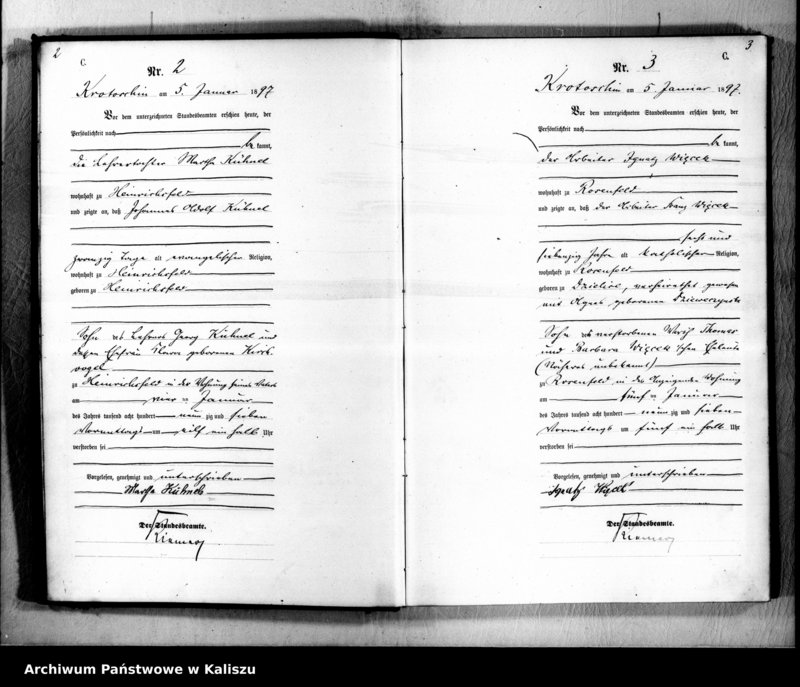 2
C.
Nr. 2
Krotoschin am 5. Januar 1897
Vor dem unterzeichneten Standesbeamten erschien heute, der
Persönlichkeit nach
be kannt,
die Lehrertochter Martha Kühnel
wohnhaft zu Heinrichsfeld
und zeigte an, daß Johannes Adolf Kühnel
zwanzig Tage alt evangelischer Religion,
wohnhaft zu Heinrichsfeld
geboren zu Heinrichsfeld
Sohn des Lehrers Georg Kühnel und
dessen Ehefrau geborenen Hirsch
vogel
zu Heinrichsfeld in der Wohnung seines Vaters
am vier ten Januar
des Jahres tausend acht hundert neun zig und sieben
Vormittags um elf ein halb Uhr
verstorben sei
Vorgelesen, genehmigt und unterschrieben
Martha Kühnel
Der Standesbeamte.
3
C.
Nr. 3
Krotoschin am 5 Januar 1897.
Vor dem unterzeichneten Standesbeamten erschien heute, der
Persönlichkeit nach
be kannt,
der Arbeiter Ignatz Wiącek
wohnhaft zu Rosenfeld
und zeigte an, daß der Arbeiter Franz Wiącek
sechs und
siebenzig Jahre alt katholischer Religion,
wohnhaft zu Rosenfeld
geboren zu verheirathet gewesen
mit Agnes geborenen
Sohn des verstorbenen Thomas
und Barbara Wiącek'schen Eheleute
(Näheres unbekannt)
zu Rosenfeld in des Anzeigenden Wohnung
am fünf ten Januar
des Jahres tausend acht hundert neun zig und sieben
Vormittags um fünf ein halb Uhr
verstorben sei
Vorgelesen, genehmigt und unterschrieben
Ignatz
Der Standesbeamte.
Archiwum Państwowe w Kaliszu